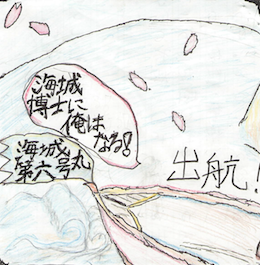 海城
博士に
俺は
なる!
海城
第六号丸
出航!